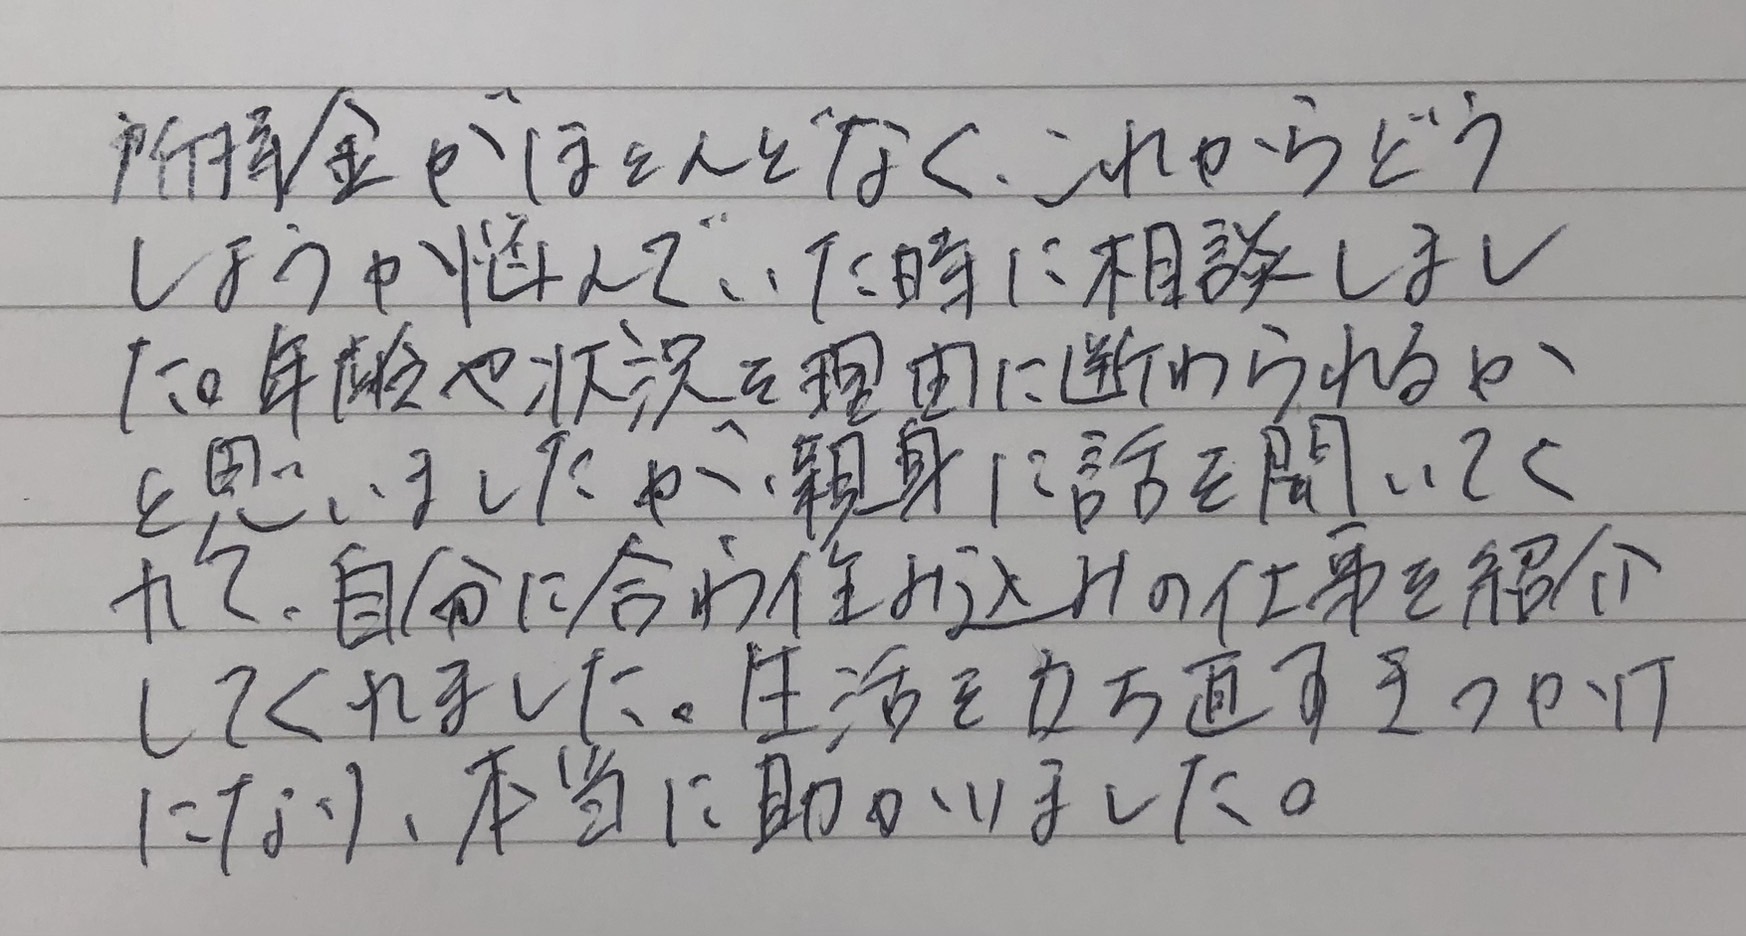 所持金がほとんどなく、これからどう
しようか悩んでいた時に相談しまし
た。年齢や状況を理由に断わられるか
と思いましたが、親身に話を聞いてく
れて、自分に合う住み込みの仕事を紹介
してくれました。生活を立ち直すきっかけ
になり、本当に助かりました。